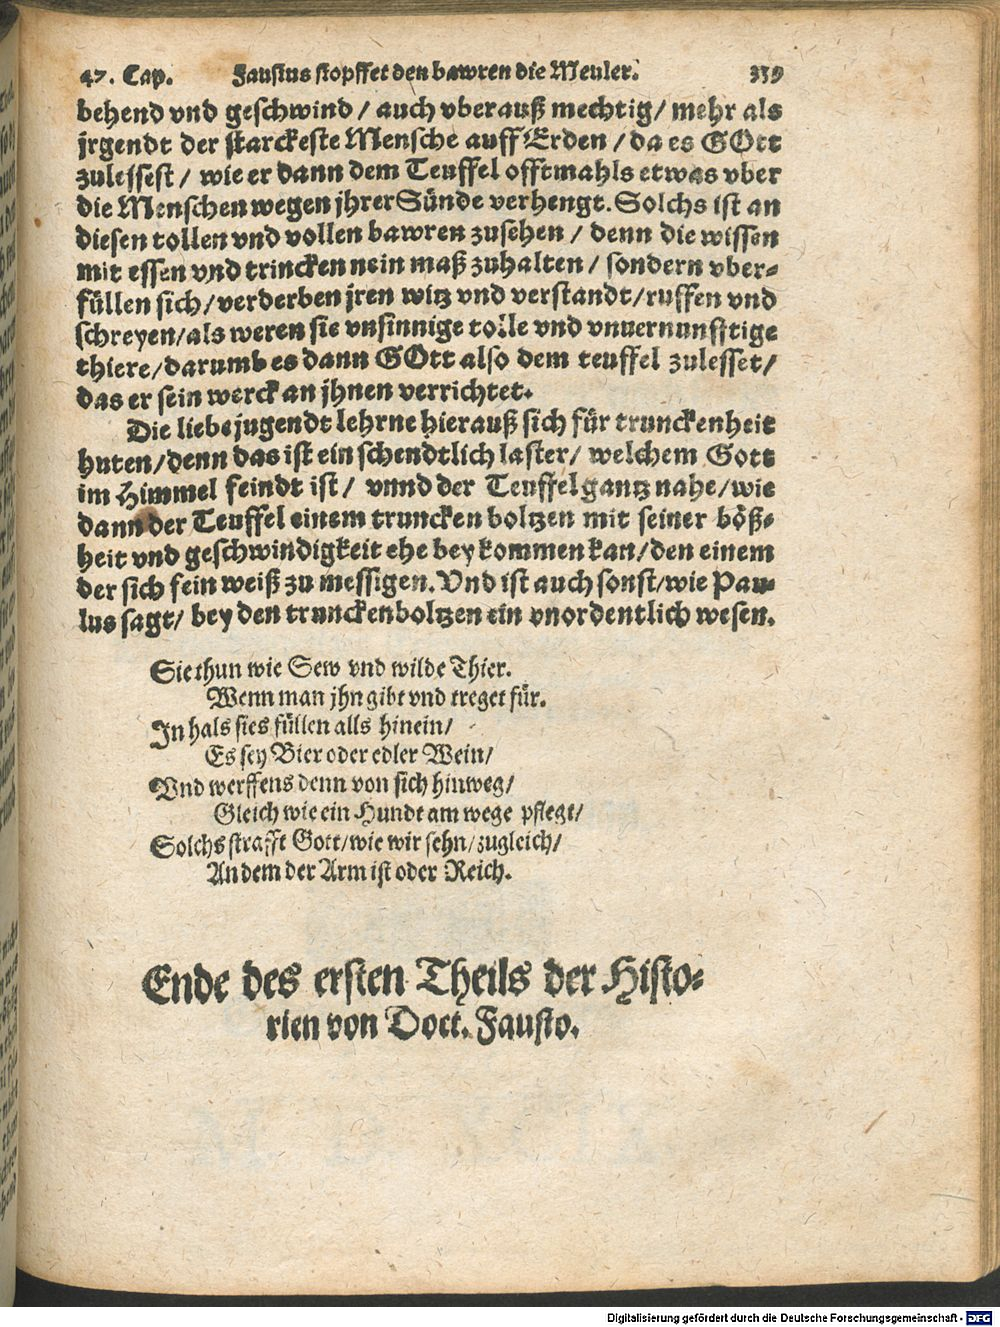 47. Cap. Faustus stopffet den bawren die Meuler. 339
behend vnd geschwind / auch vberauß mechtig / mehr als
jrgendt der starckeste Mensche auff Erden / da es GOtt
zulejsest / wie er dann dem Teuffel offtmahls etwas vber
die Menschen wegen jhrer Sünde verhengt. Solchs ist an
diesen tollen vnd vollen bawren zusehen / denn die wissen
mit essen vnd trincken nein maß zuhalten / sondern vber-
füllen sich / verderben jren witz vnd verstandt / ruffen vnd
schreyen / als weren sie vnsinnige tolle vnd vnuernunfftige
thiere / darumb es dann GOtt also dem teuffel zulesset /
das er sein werck an jhnen verrichtet.
Die liebe jugendt lehrne hierauß sich für trunckenheit
huten / denn das ist ein schendtlich laster / welchem Gott
im Himmel feindt ist / vnnd der Teuffel gantz nahe / wie
dann der Teuffel einem truncken boltzen mit seiner böß-
heit vnd geschwindigkeit ehe bey kommen kan / den einem
der sich fein weiß zu messigen. Vnd ist auch sonst / wie Pau-
lus sagt / bey den trunckenboltzen ein vnordentlich wesen.
Sie thun wie Sew vnd wilde Thier.
Wenn man jhn gibt vnd treget für.
In hals sies füllen alls hinein /
Es sey Bier oder edler Wein /
Vnd werffens denn von sich hinweg /
Gleich wie ein Hundt am wege pflegt /
Solchs strafft Gott / wie wir sehn / zugleich /
An dem der Arm ist oder Reich.
Ende des ersten Theils der Histo-
rien von Doct. Fausto.
Digitalisierung gefördert durch die Deutsche Forschungsgemeinschaft - DFG